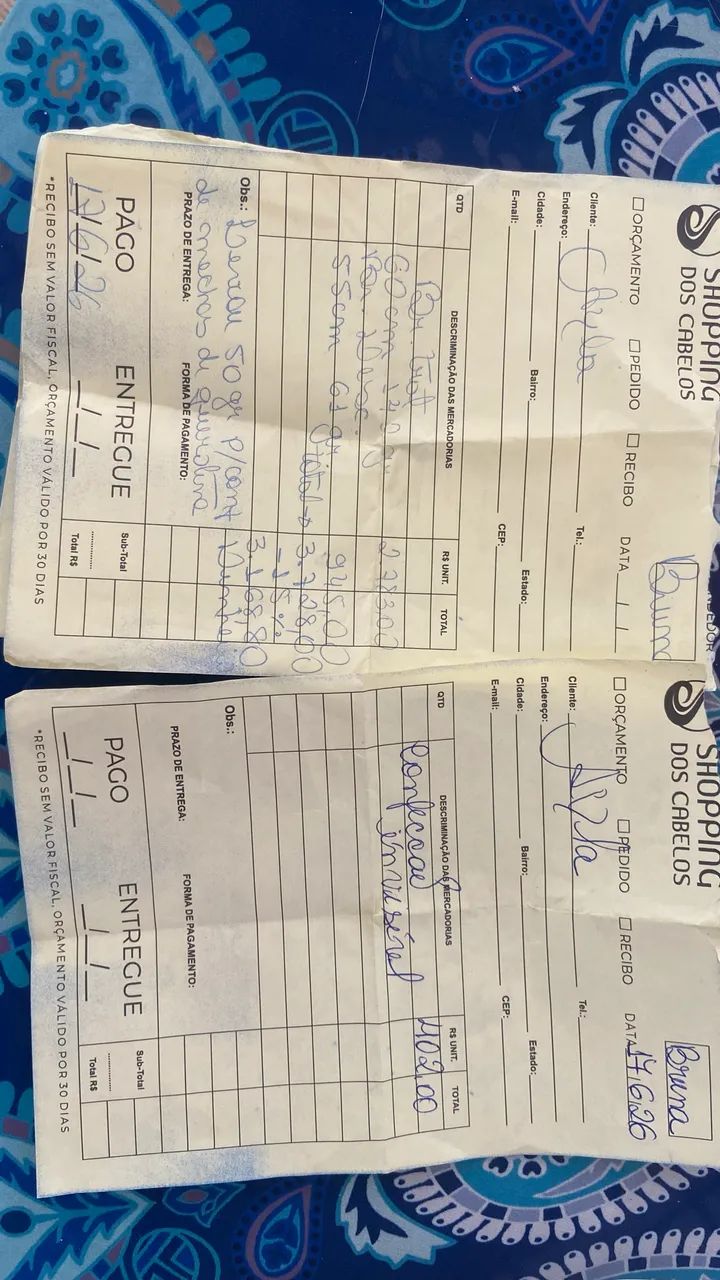 SHOPPING
DOS CABELOS
Bruna
ORÇAMENTO PEDIDO RECIBO DATA / /
Cliente: Ayla Tel.:
Endereço:
Cidade: Bairro: Estado:
E-mail: CEP:
QTD DESCRIMINAÇÃO DAS MERCADORIAS R$ UNIT. TOTAL
Br.
60 cm 140 gr 2.783,00
55cm 61 gr 945,00
total → 3.728,00
-15%
3.168,80
Obs.: Levou 50 gr p/conf
de mechas de queratina
PRAZO DE ENTREGA: FORMA DE PAGAMENTO:
PAGO ENTREGUE Sub-Total
17/6/26 / / Total R$
*RECIBO SEM VALOR FISCAL, ORÇAMENTO VÁLIDO POR 30 DIAS
SHOPPING
DOS CABELOS
Bruna
ORÇAMENTO PEDIDO RECIBO DATA 17,6,26
Cliente: Ayla Tel.:
Endereço:
Cidade: Bairro: Estado:
E-mail: CEP:
QTD DESCRIMINAÇÃO DAS MERCADORIAS R$ UNIT. TOTAL
Confeccao 402,00
invisivel
Obs.:
PRAZO DE ENTREGA: FORMA DE PAGAMENTO:
PAGO ENTREGUE Sub-Total
/ / / / Total R$
*RECIBO SEM VALOR FISCAL, ORÇAMENTO VÁLIDO POR 30 DIAS